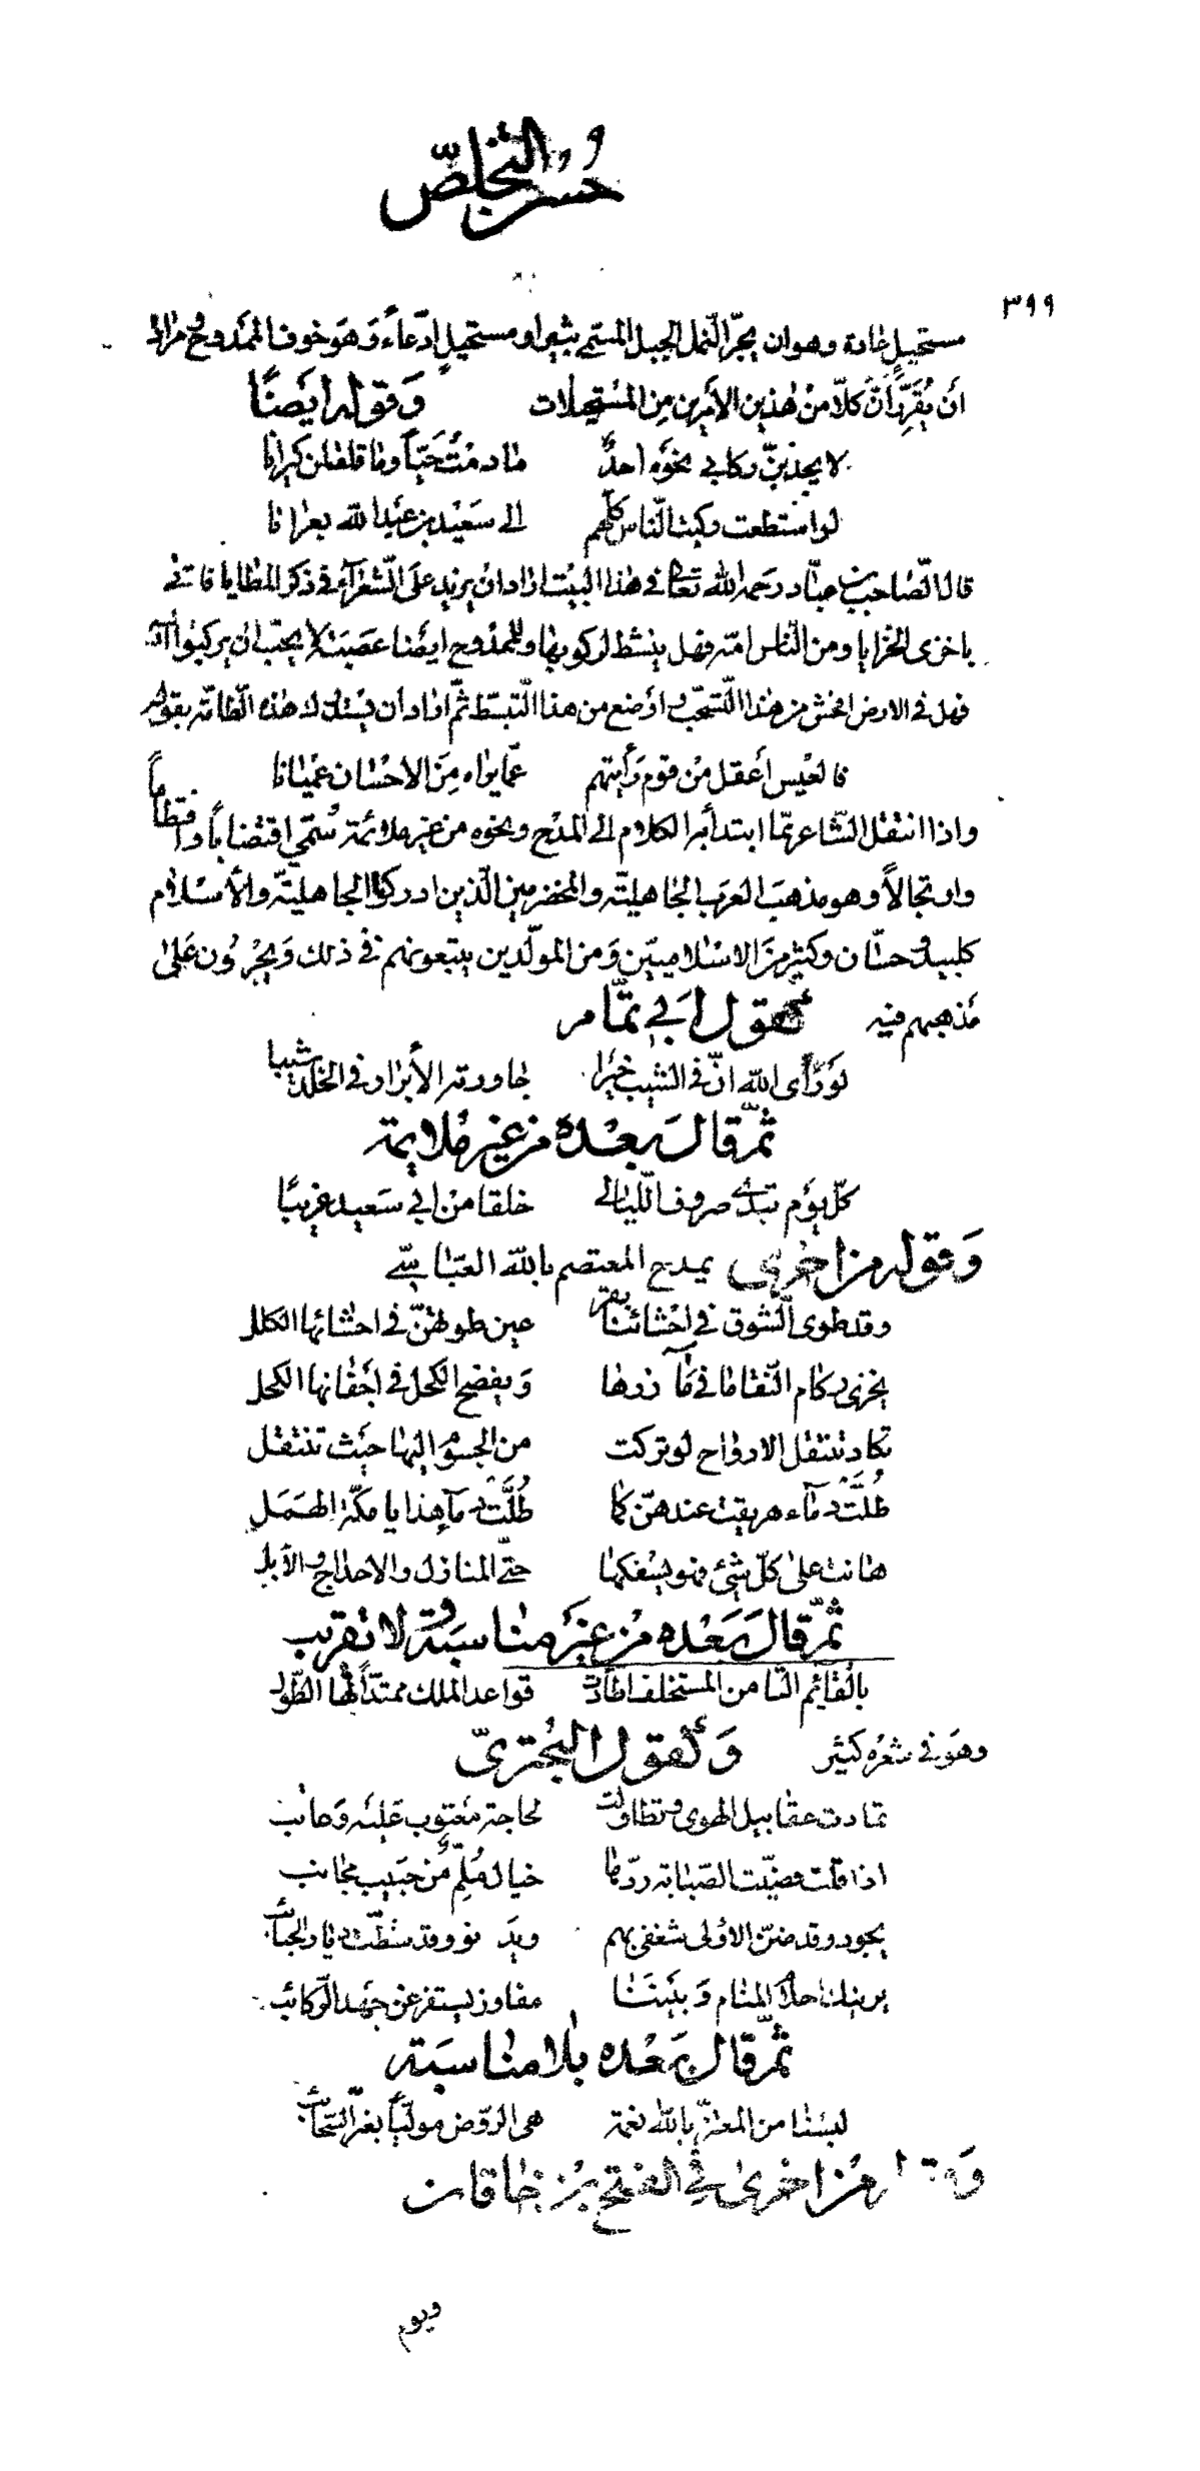 حُسن التخلّص
٣٩٩
مستحيلٍ عادة وهو ان يجرّ النّمل الجبل المسمّى بثبير او مستحيلٍ ادّعاءً وَهو خوف الممدوح ومراده
أن يُقَرِّر أنّ كلّا منْ هٰذين الأمرين مِن المُستحيلات وَقوله ايضًا
لا يجذبنّ ركابي نحوَه احدٌ ما دمْتُ حَيّاً وما قلقلن كيرانا
لو استطعت ركبت النّاس كلّهم الى سَعيْد بن عبْد الله بعرانا
قال الصّاحب بن عبّاد رحمه الله تعالى في هٰذا البيْت اراد ان يزيد على الشّعرآء في ذكر المطايا فاتى
باخزى الخزايا ومن النّاس امّه فهل ينشط لركوبها وللممدوح ايضا عصبة لا يحبّ ان يركبوا اليه
فهل في الارض افحش من هٰذا التسحّب واوضع من هذا التبسّط ثمّ اراد ان يستدرك هٰذه الطّامّه بقوله
فالعيْس أعقل منْ قوم رَأيتهم عمّا يراه مِنَ الاحْسان عمْيانا
واذا انتقل الشّاعر ممّا ابتدأ به الكلام الى المدْح ونحوه من غير ملائمة سُمّي اقتضاباً واقتطاعاً
وارتجالاً وهو مذهبَ العرب الجاهليّه والمخضرمين الّذين ادركوا الجاهليّة والأسلام
كلبيد وحسّان وكثير منَ الاسْلاميّين وَمن المولّدين يتبعونهم في ذلك وَيجْرُون عَلى
مَذهبهم فيه كقول ابي تمّام
لوْ رَأى الله انّ في الشيب خيْرا جاورته الأبرار في الخلد شيبا
ثمّ قال بعْده من غيْر مُلايمة
كلّ يوْم تبدي صروف اللّيالى خلقا منْ ابي سَعيد غريبًا
وَقوله من اخرى يمدح المعتصم بالله العبّاسيّ
وقد طوى الشوق في احْشائنا بقر عين طوتهنّ في احشائها الكلل
يخزى ركام النّقا ما في مَآزرها وَيفضح الكحل في اجْفانها الكحل
تكاد تنتقل الارواح لو تركت من الجسوم اليها حيْث تنتقل
طُلَّت دمآء هريقت عندهنّ كما طُلَّت دمآء هدايا مكّة الهمَل
هانت على كلّ شيْئ فهو يسْفكها حتّى المنازل والاحداج والأبل
ثمّ قال بَعْده منْ غيْر مناسَبة ولا تقريب
بالقائم الثّامن المستخلف اطّأدت قواعد الملك ممتدّاً لها الطّول
وهوَ في شعْره كثير وَكقول البُحتريّ
تمادت عقابيل الهوى وتطاولت لجاجة معْتوب عليْه وَعاتب
اذا قلت قضيّت الصّبابة ردّها خيال مُلِمّ منْ حَبيب مجانب
يجود وقد ضنّ الأولى شغفى بهم ويدنو وقد شطّت ديار الحبائب
يرينك احلام المنام وَبيْنَنا مفاوز يستفرغن جهْد الرّكائب
ثمّ قال بَعْده بلا مناسبَة
لبسْنا من المعتزّ بالله نعْمة هى الرّوض موليّاً بغرّ السّحائب
وقوله منْ اخرىٰ في الفتح بنْ خاقان
ويوم